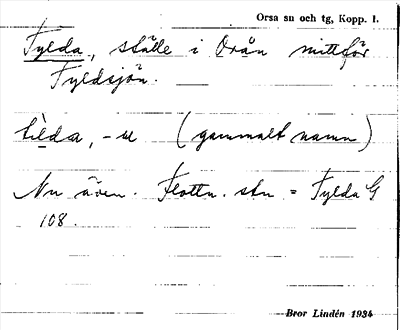 Orsa sn och tg, Kopp. l.
Fylda, ställe i Orån mittför
Fyldsjön.
, -u (gammalt namn)
Nu även. Flottn. stn = Fylda G
108.
Bror Lindén 1934